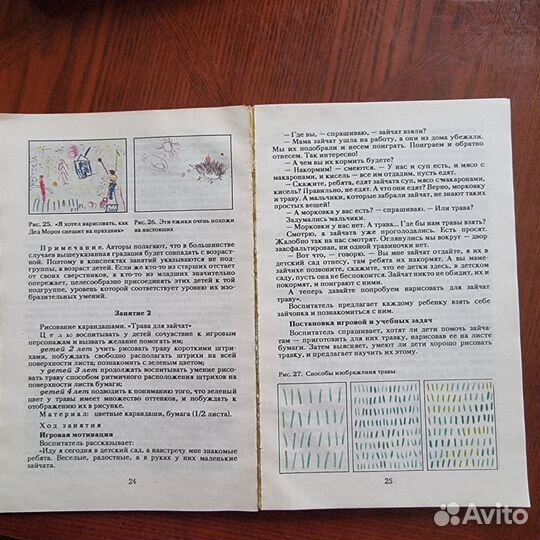 Рис. 25. «Я хотел нарисовать, как
Дед Мороз спешит на праздник»
Рис. 26. Эти ежики очень похожи
на настоящих
Примечание. Авторы полагают, что в большинстве
случаев вышеуказанная градация будет совпадать с возраст-
ной. Поэтому в конспектах занятий указываются не под-
группы, а возраст детей. Если же кто-то из старших отстает
от своих сверстников, а кто-то из младших значительно
опережает, целесообразно присоединять этих детей к той
подгруппе, уровень которой соответствует уровню их изо-
бразительных умений.
Занятие 2
Рисование карандашами. «Трава для зайчат»
Цель: воспитывать у детей сочувствие к игровым
персонажам и вызвать желание помогать им;
детей 2 лет учить рисовать траву короткими штри-
хами, побуждать свободно располагать штрихи на всей
поверхности листа; познакомить с зеленым цветом;
у детей 3 лет продолжать воспитывать умение рисо-
вать траву способом ритмичного расположения штрихов на
поверхности листа бумаги;
детей 4 лет подводить к пониманию того, что зеленый
цвет у травы имеет множество оттенков, и побуждать к
отображению их в рисунке.
Материал: цветные карандаши, бумага (1/2 листа).
Ход занятия
Игровая мотивация
Воспитатель рассказывает:
«Иду я сегодня в детский сад, а навстречу мне знакомые
ребята. Веселые, радостные, а в руках у них маленькие
зайчата.
24
— Где вы, — спрашиваю, — зайчат взяли?
— Мама зайчат ушла на работу, а они из дома убежали.
Мы их подобрали и несем поиграть. Поиграем и обратно
отнесем. Так интересно!
— А чем вы их кормить будете?
— Накормим! — смеются. — У нас и суп есть, и мясо с
макаронами, и кисель — все им отдадим, пусть едят.
— Скажите, ребята, едят зайчата суп, мясо с макаронами,
кисель? Правильно, не едят. А что они едят? Верно, морковку
и траву. А мальчики, которые забрали зайчат, не знают таких
простых вещей!
— А морковка у вас есть? — спрашиваю. — Или трава?
Задумались мальчики.
— Морковки у нас нет. А трава... Где бы нам травы взять?
Смотрю, а зайчата уже проголодались. Есть просят.
Жалобно так на нас смотрят. Оглянулись мы вокруг — двор
заасфальтирован, ни одной травиночки нет.
— Вот что, — говорю. — Вы мне зайчат отдайте, я их в
детский сад отнесу, там ребята их покормят. А вы маме-
зайчихе позвоните, скажите, что ее детки здесь, в детском
саду, пусть она не беспокоится. Зайчат никто не обидит, их и
покормят, и поиграют с ними.
А теперь давайте попробуем нарисовать для зайчат
траву».
Воспитатель предлагает каждому ребенку взять себе
зайчонка и познакомиться с ним.
Постановка игровой и учебных задач
Воспитатель спрашивает, хотят ли дети помочь зайча-
там — приготовить для них травку, нарисовав ее на листе
бумаги. Затем выясняет, умеют ли дети хорошо рисовать
травку, и предлагает научить их этому.
Рис. 27. Способы изображения травы
25
Avito